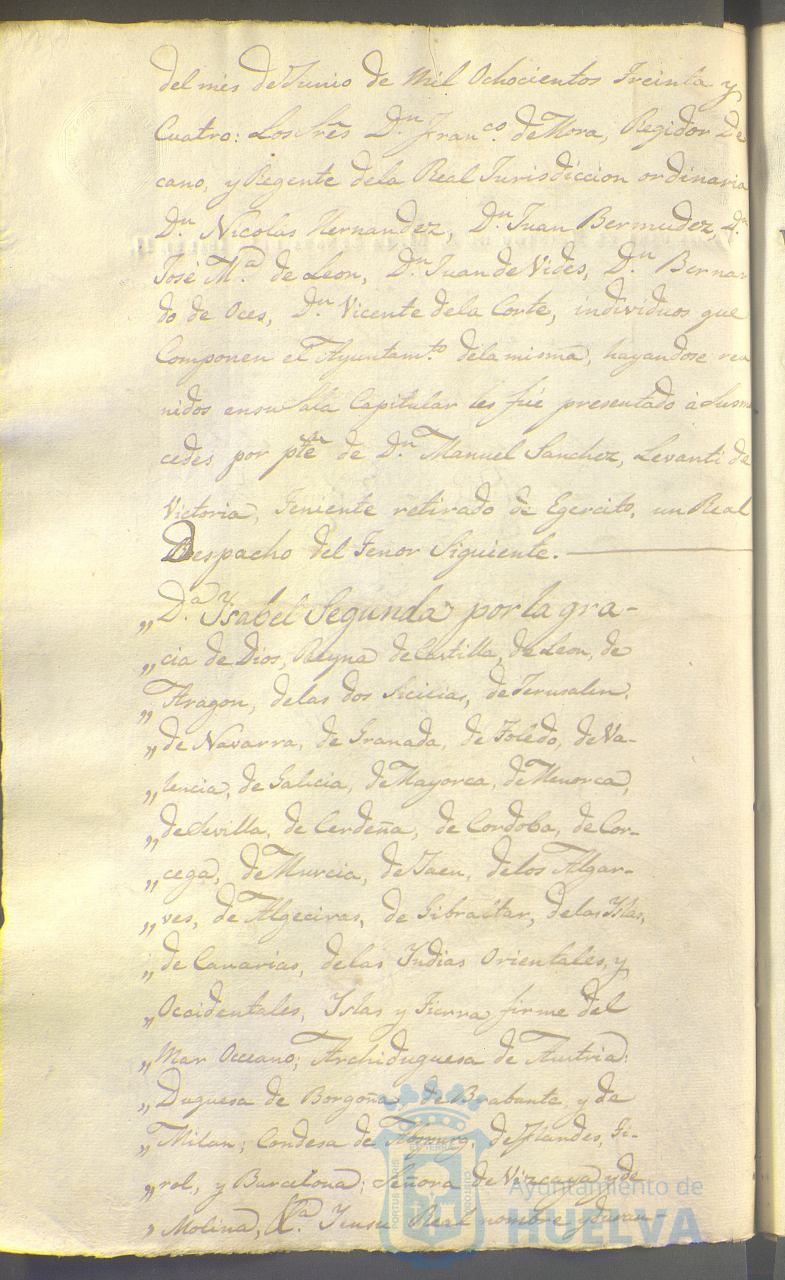 del mes de Junio de Mil Ochocientos Treinta y
Cuatro: Los Sres Dn. Franco. de Mora, Regidor De
cano, y Regente dela Real Jurisdiccion ordinaria
Dn. Nicolas Hernandez, Dn. Juan Bermudez, Dn.
José Ma. de Leon, Dn. Juan de Vides, Dn. Bernar
do de Oces, Dn. Vicente dela Corte, individuos que
Componen el Ayuntamto. dela misma, hayandose reu
nidos en su Sala Capitular les fué presentado à Susme
cedes por pte de Dn. Manuel Sanchez, Levanti de
Victoria, Teniente retirado de Egercito, un Real
Despacho del Tenor Siguiente.
„Da. Ysabel Segunda por la gra-
„cia de Dios, Reyna de Castilla, de Leon, de
„Aragon, delas dos Sicilias, de Jerusalen,
„de Navarra, de Granada, de Toledo, de Va-
„lencia, de Galicia, de Mayorca, de Menorca,
„de Sevilla, de Cerdeña, de Cordoba, de Cor-
„cega, de Murcia, de Jaen, delos Algar-
„ves, de Algeciras, de Gibraltar, delas Yslas,
„de Canarias, delas Yndias Orientales, y
„Occidentales, Yslas y Tierra firme del
„Mar Occeano; Archiduquesa de Austria;
„Duquesa de Borgoña, de Brabante y de
„Milan; Condesa de Abspurg, de Flandes, Ti-
„rol, y Barcelona; Señora de Vizcaya y de
„Molina, &a. Y en su Real nombre y duran
Ayuntamiento de
HUELVA